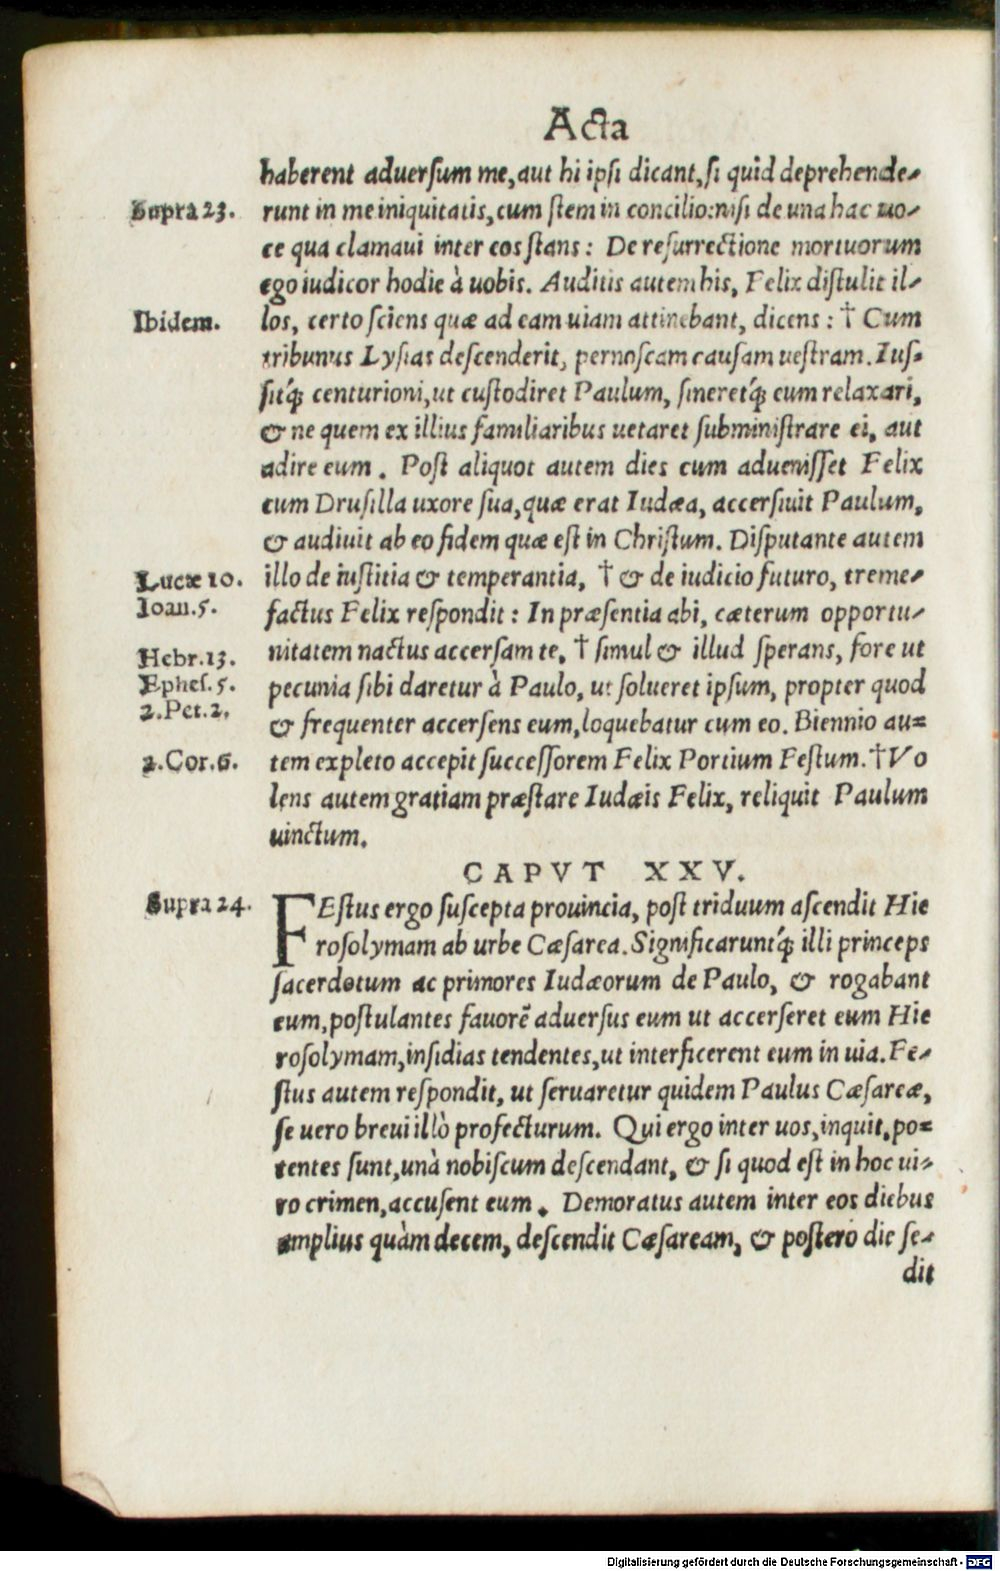 Acta
haberent aduersum me, aut hi ipsi dicant, si quid deprehende-
Supra 23. runt in me iniquitatis, cum stem in concilio: nisi de una hac uo-
ce qua clamaui inter eos stans: De resurrectione mortuorum
ego iudicor hodie à uobis. Auditis autem his, Felix distulit il-
Ibidem. los, certo sciens quæ ad eam uiam attinebant, dicens: † Cum
tribunus Lysias descenderit, pernoscam causam uestram. Ius-
sitq́; centurioni, ut custodiret Paulum, sineretq́; eum relaxari,
& ne quem ex illius familiaribus uetaret subministrare ei, aut
adire eum. Post aliquot autem dies cum aduenisset Felix
cum Drusilla uxore sua, quæ erat Iudæa, accersiuit Paulum,
& audiuit ab eo fidem quæ est in Christum. Disputante autem
Lucæ 10. illo de iustitia & temperantia, † & de iudicio futuro, treme-
Ioan. 5. factus Felix respondit: In præsentia abi, cæterum opportu-
Hebr. 13. nitatem nactus accersam te, † simul & illud sperans, fore ut
Ephes. 5. pecunia sibi daretur à Paulo, ut solueret ipsum, propter quod
2. Pet. 2. & frequenter accersens eum, loquebatur cum eo. Biennio au-
2. Cor. 6. tem expleto accepit successorem Felix Portium Festum. † Vo
lens autem gratiam præstare Iudæis Felix, reliquit Paulum
uinctum.
CAPVT XXV.
Supra 24. FEstus ergo suscepta prouincia, post triduum ascendit Hie
rosolymam ab urbe Cæsarea. Significaruntq́; illi princeps
sacerdotum ac primores Iudæorum de Paulo, & rogabant
eum, postulantes fauorẽ aduersus eum ut accerseret eum Hie
rosolymam, insidias tendentes, ut interficerent eum in uia. Fe-
stus autem respondit, ut seruaretur quidem Paulus Cæsareæ,
se uero breui illò profecturum. Qui ergo inter uos, inquit, po-
tentes sunt, unà nobiscum descendant, & si quod est in hoc ui-
ro crimen, accusent eum. Demoratus autem inter eos diebus
amplius quàm decem, descendit Cæsaream, & postero die se-
dit
Digitalisierung gefördert durch die Deutsche Forschungsgemeinschaft - DFG